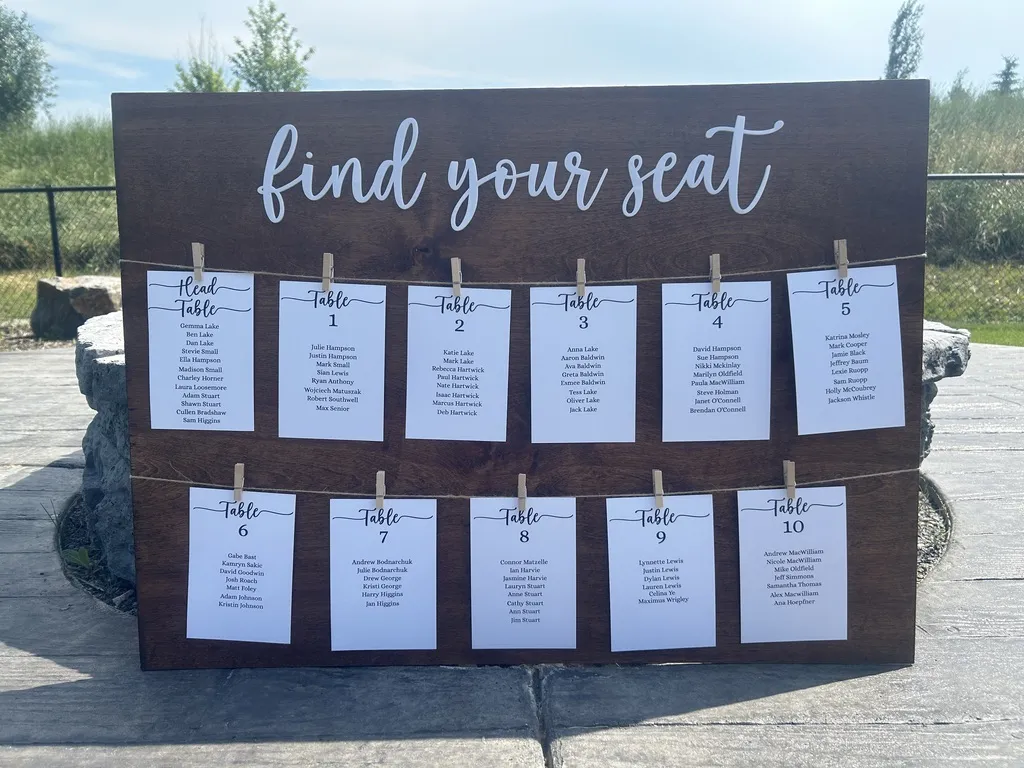 find your seat
Head
Table
Gemma Lake
Ben Lake
Dan Lake
Stevie Small
Ella Hampson
Madison Small
Charley Horner
Laura Loosemore
Adam Stuart
Shawn Stuart
Cullen Bradshaw
Sam Higgins
Table
1
Julie Hampson
Justin Hampson
Mark Small
Sian Lewis
Ryan Anthony
Wojciech Matuszak
Robert Southwell
Max Senior
Table
2
Katie Lake
Mark Lake
Rebecca Hartwick
Paul Hartwick
Nate Hartwick
Isaac Hartwick
Marcus Hartwick
Deb Hartwick
Table
3
Anna Lake
Aaron Baldwin
Ava Baldwin
Greta Baldwin
Esmee Baldwin
Tess Lake
Oliver Lake
Jack Lake
Table
4
David Hampson
Sue Hampson
Nikki Mckinlay
Marilyn Oldfield
Paula MacWilliam
Steve Holman
Janet O'Connell
Brendan O'Connell
Table
5
Katrina Mosley
Mark Cooper
Jamie Black
Jeffrey Baum
Lexie Ruopp
Sam Ruopp
Holly McCoubrey
Jackson Whistle
Table
6
Gabe Bast
Kamryn Sakic
David Goodwin
Josh Roach
Matt Foley
Adam Johnson
Kristin Johnson
Table
7
Andrew Bodnarchuk
Julie Bodnarchuk
Drew George
Kristi George
Harry Higgins
Jan Higgins
Table
8
Connor Matzelle
Ian Harvie
Jasmine Harvie
Lauryn Stuart
Anne Stuart
Cathy Stuart
Ann Stuart
Jim Stuart
Table
9
Lynnette Lewis
Justin Lewis
Dylan Lewis
Lauren Lewis
Celina Ye
Maximus Wrigley
Table
10
Andrew MacWilliam
Nicole MacWilliam
Mike Oldfield
Jeff Simmons
Samantha Thomas
Alex Macwilliam
Ana Hoepfner